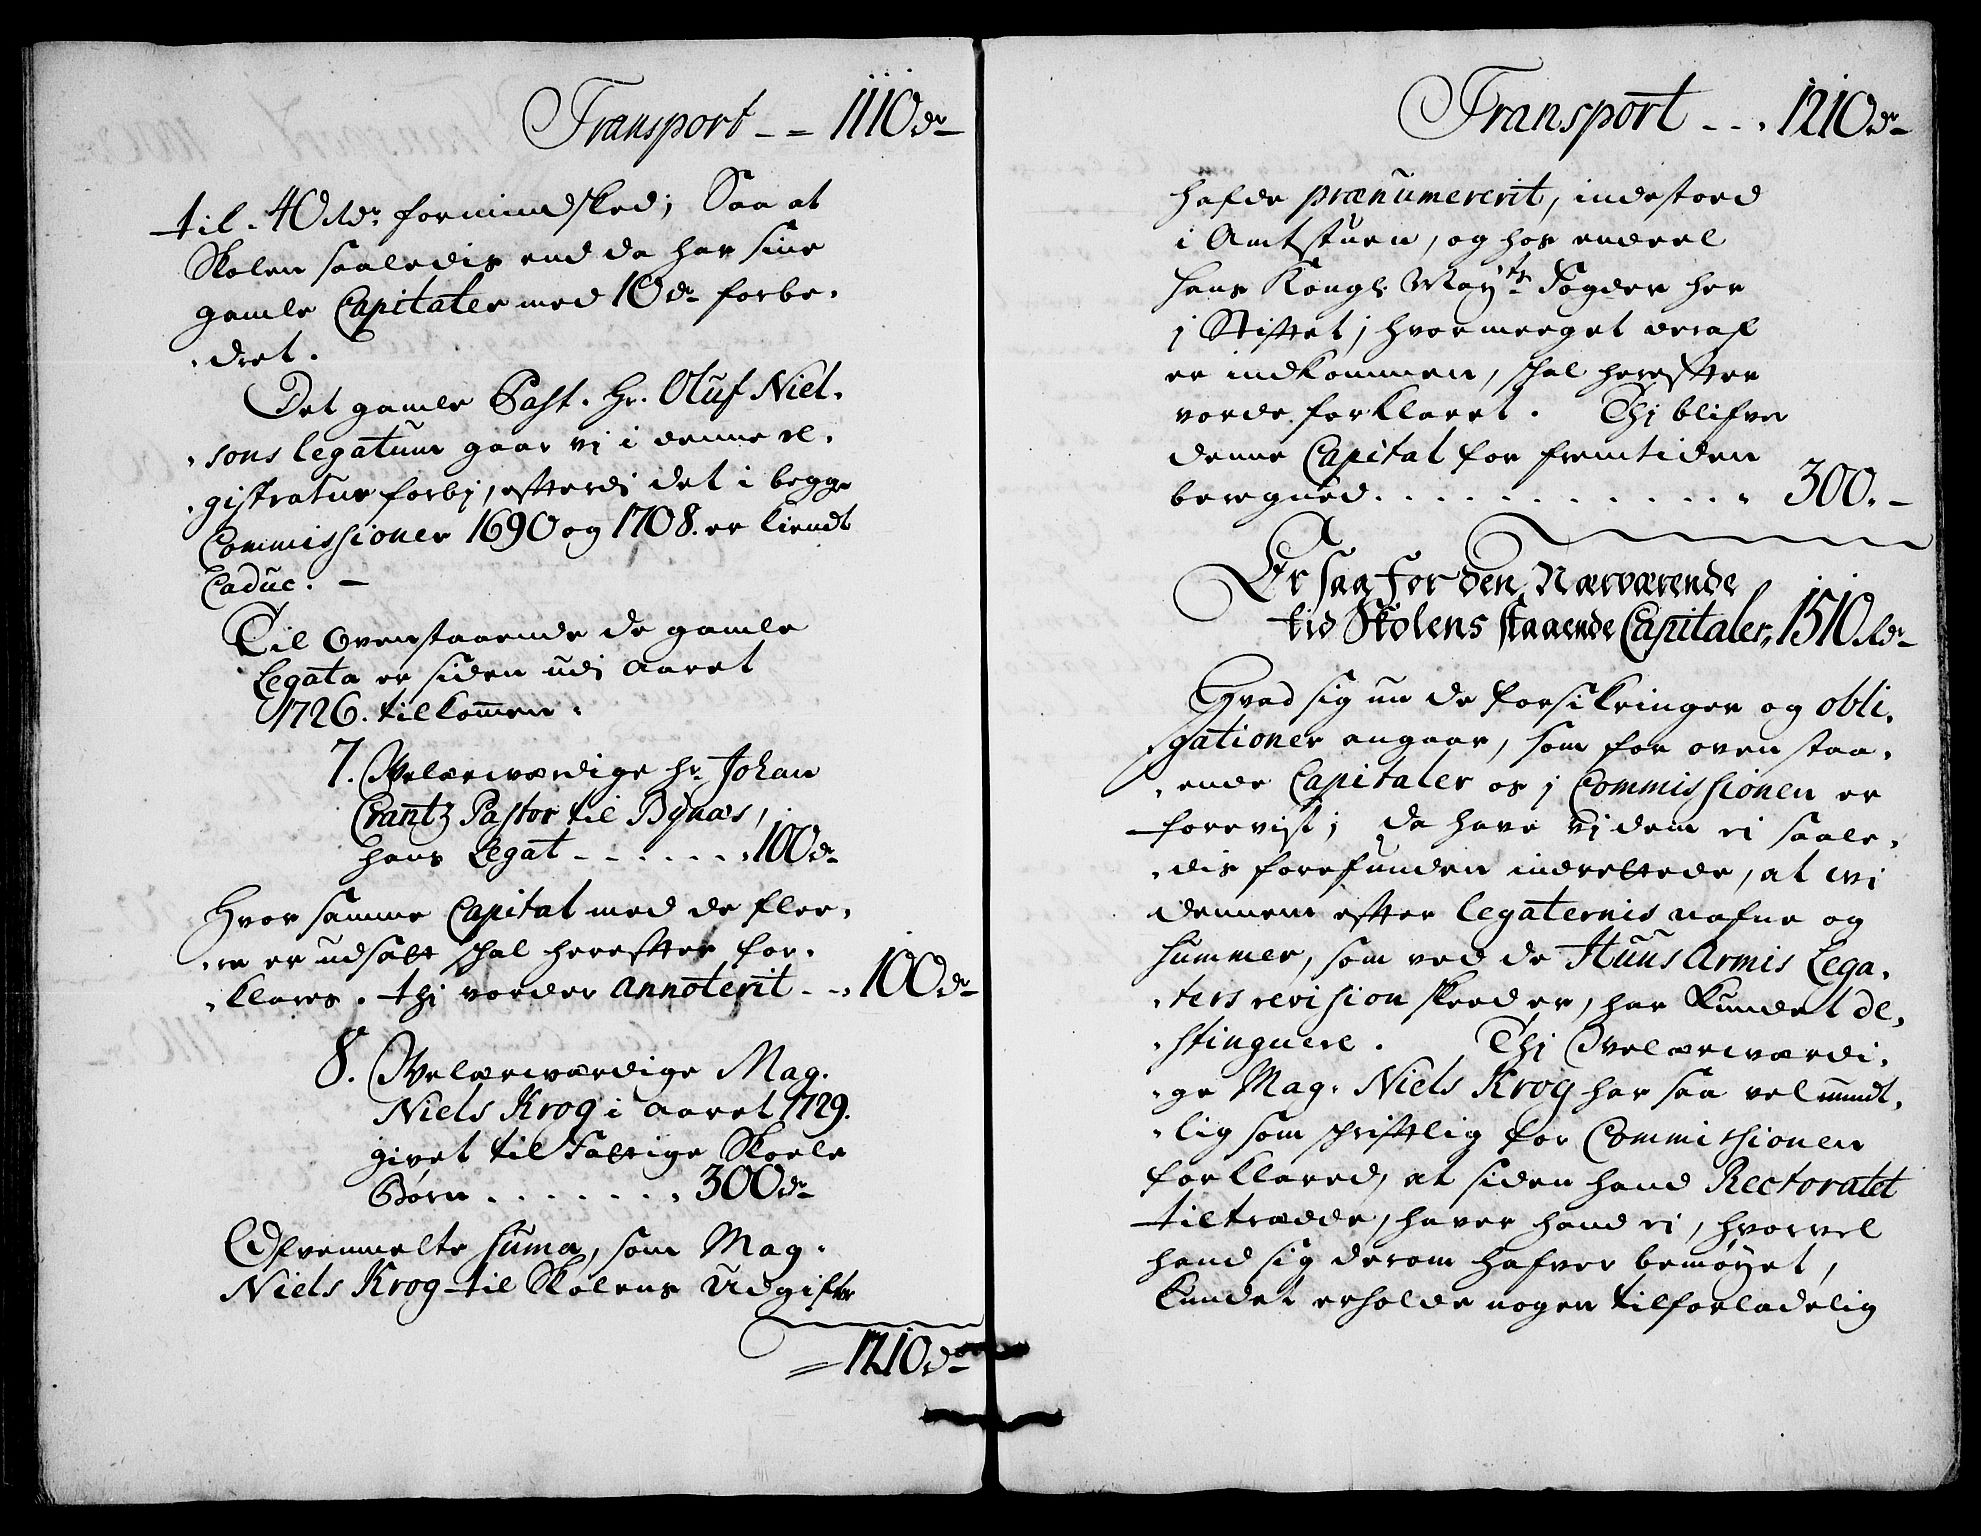 Transport - - 1110 dr
til 40 Rdr formindsked; Saa at
Skolen saaledis end da har sine
gamle Capitaler med 10 dr forbe-
-dret.
Det gamle Past. Hr. Oluf Niel-
-sons Legatum gaar vj i denne re-
-gistratur forbj, efterdj det i begge
Commissioner 1690 og 1708. er kiendt
Caduc. -
Til ovenstaaende de gamle
Legata er siden udj aaret
1726. tilkom̄en.
7. Velærværdige Hr. Johan
Crantz Pastor til Bynæs,
hans Legat - - - - - - 100 dr
Hvor samme Capital med de flee-
-re er udsatt skal herefter for-
-klares. thj vorder annoterit - - 100 dr
8. Velærværdige Mag.
Niels Krog i aaret 1729.
givet til Fattige Skoele
Børn . . . . . . . 300 dr
Ofvenmelte suma, som Mag.
Niels Krog til Skolens Udgifter
= 1210 dr
Transport - - - 1210 dr
hafde prænumererit, indestoed
i Amtstuen, og hos endeel
hans Kongl. Mayts Fogder her
j Stiftet; hvormeeget deraf
er indkommen, skal herefter
vorde forklaret. Thj blifver
denne Capital for fremtiden
beregned . . . . . . . . . . . 300. -
Er saa for den Nærværende
tid Skolens staaende Capitaler, 1510 Rdr
Hvad sig nu de forsikringer og obli-
gationer angaar, som for ovenstaa-
-ende Capitaler os j Commissionen er
forevist; da have vj dem ei saale-
-dis forefunden indrettede, at wi
dennem efter Legaternis nafne og
summer, som ved de Huus Armis Lega-
-ters revision skeed er, har kundet de-
-stinguere. Thj Velærværdi-
-ge Mag. Niels Krog har saa vel mundt-
-lig som skriftlig for Commissionen
forklared, at siden hand Rectoratet
tiltrædde, haver hand ei, hvorvel
hand sig derom hafver bemøyet,
kundet erholde nogen tilforladelig